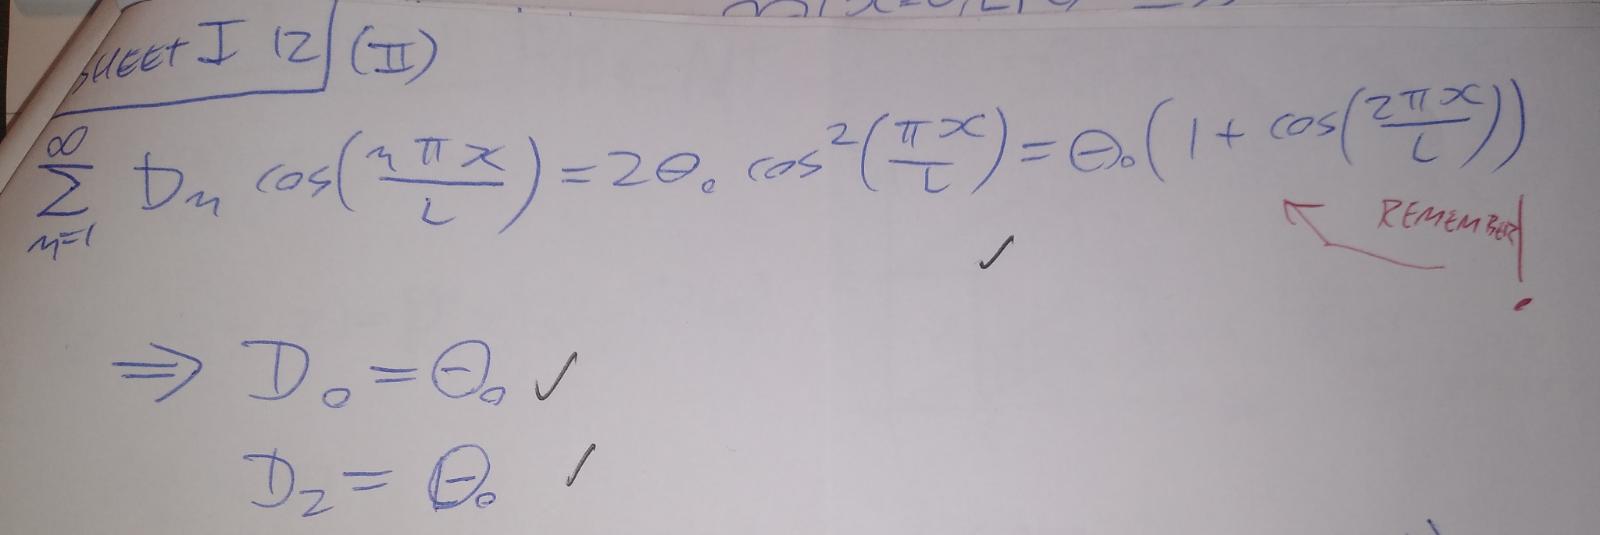 SHEET I 12 (II)
∞
∑ Dn cos(nπx/L) = 2θ₀ cos²(πx/L) = θ₀(1 + cos(2πx/L))
n=1
REMEMBER!
⇒ D₀ = θ₀ ✓
D₂ = θ₀ ✓